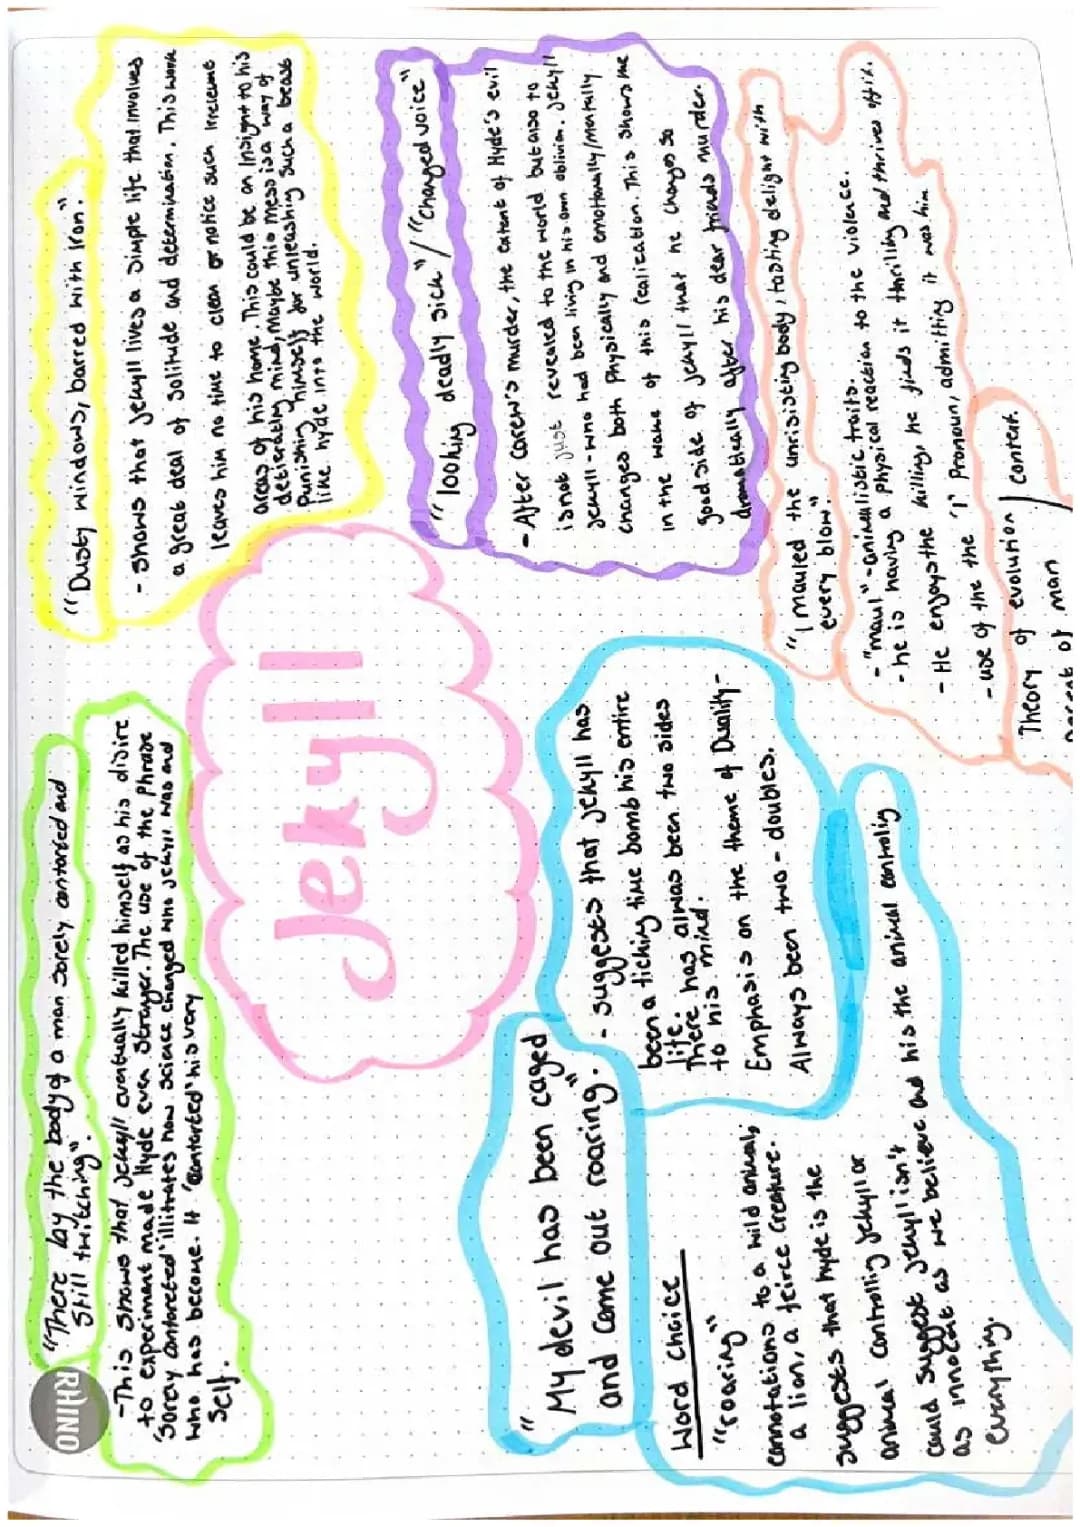 Jekyll
"There lay the body of a man sorely contorted and
still twitching".
- This shows that Jekyll eventually killed himself as his disire
to experiment made Hyde even stronger. The use of the phrase
'sorely contoreted' illistrates how science changed who Jekyll was and
who has become. It 'contorted' his very
self.
"Dusty windows, barred with Iron."
- Shows that Jekyll lives a simple life that involves
a great deal of solitude and determination. This work
leaves him no time to clean or notice such irrelevent
areas of his home. This could be an insight to his
deterierating mind, maybe this mess is a way of
punishing himself for unleashing such a beast
like hyde into the world.
"looking deadly sick" / "Changed voice"
- After Carew's murder, the extent of Hyde's evil
is not just revealed to the world but also to
Jekyll - who had been living in his own oblivion. Jekyll
changes both physically and emotionally/mentally
in the wake of this realication. This shows the
good side of Jekyll that he changes so
dramatically after his dear friends murder.
"My devil has been caged
and came out roaring".
- suggests that Jekyll has
been a ticking time bomb his entire
life.
There has always been two sides
to his mind.
Emphasis on the theme of Duality -
Always been two - doubles.
Word choice
"roaring"
connotations to a wild animal,
a lion, a feirce creature.
suggests that hyde is the
animal controlling Jekyll or
could suggest Jekyll isn't
as innocent as we believe and his the animal controlig
everything.
"I mauled the unristing body, tasting delight with
every blow".
- "maul" - animalistic traits.
- he is having a physical reaction to the violence.
- He enjoys the killing, he finds it thrilling and thrives off it.
- use of the the 'I' Pronoun, admitting it was him
Theory of evolution / context.
of man
RHINO